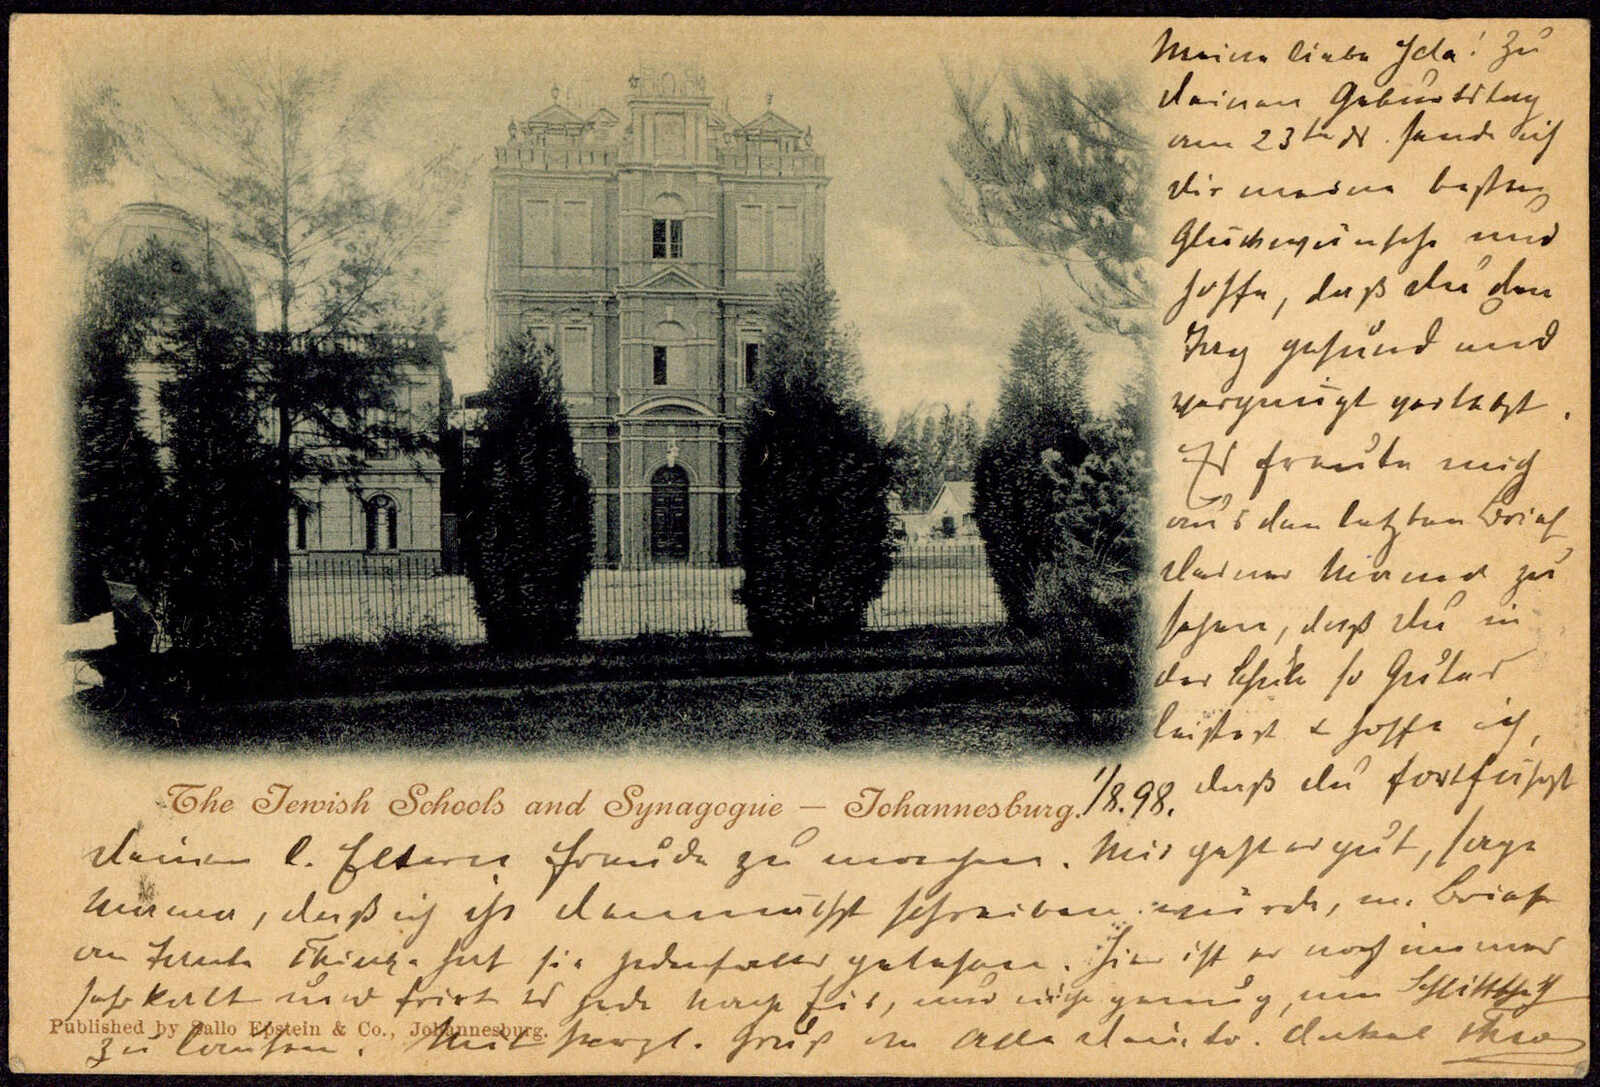 Meine liebe Ida! Zu
deinem Geburtstag
am 23ten ds. sende ich
dir meine besten
Glückwünsche und
hoffe, daß du den
Tag gesund und
vergnügt verlebst.
Es freute mich
aus dem letzten Brief
deiner Mama zu
sehen, daß du in
der Schule so Gutes
leistest & hoffe ich,
daß du fortfährst
The Jewish Schools and Synagogue — Johannesburg.
1/8.98.
deinen l. Eltern Freude zu machen. Mir geht es gut, sage
Mama, daß ich ihr demnächst schreiben würde, m. Brief
an Tante hat sie jedenfalls gelesen. Hier ist es noch immer
sehr kalt und friert es jede Nacht Eis, nur nicht genug, um Schlittschuh
Published by Sallo Epstein & Co., Johannesburg.
zu laufen. Mit herzl. Gruß an Alle dein tr. Onkel Theo